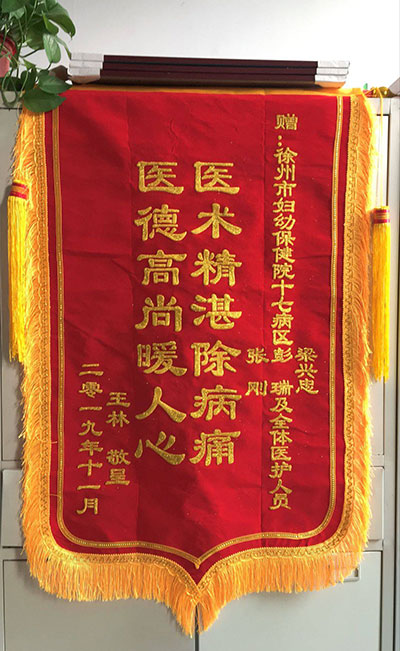 赠：徐州市妇幼保健院十七病区
梁兴忠
彭瑞及全体医护人员
张刚
医术精湛除病痛
医德高尚暖人心
王林 敬呈
二零一九年十一月